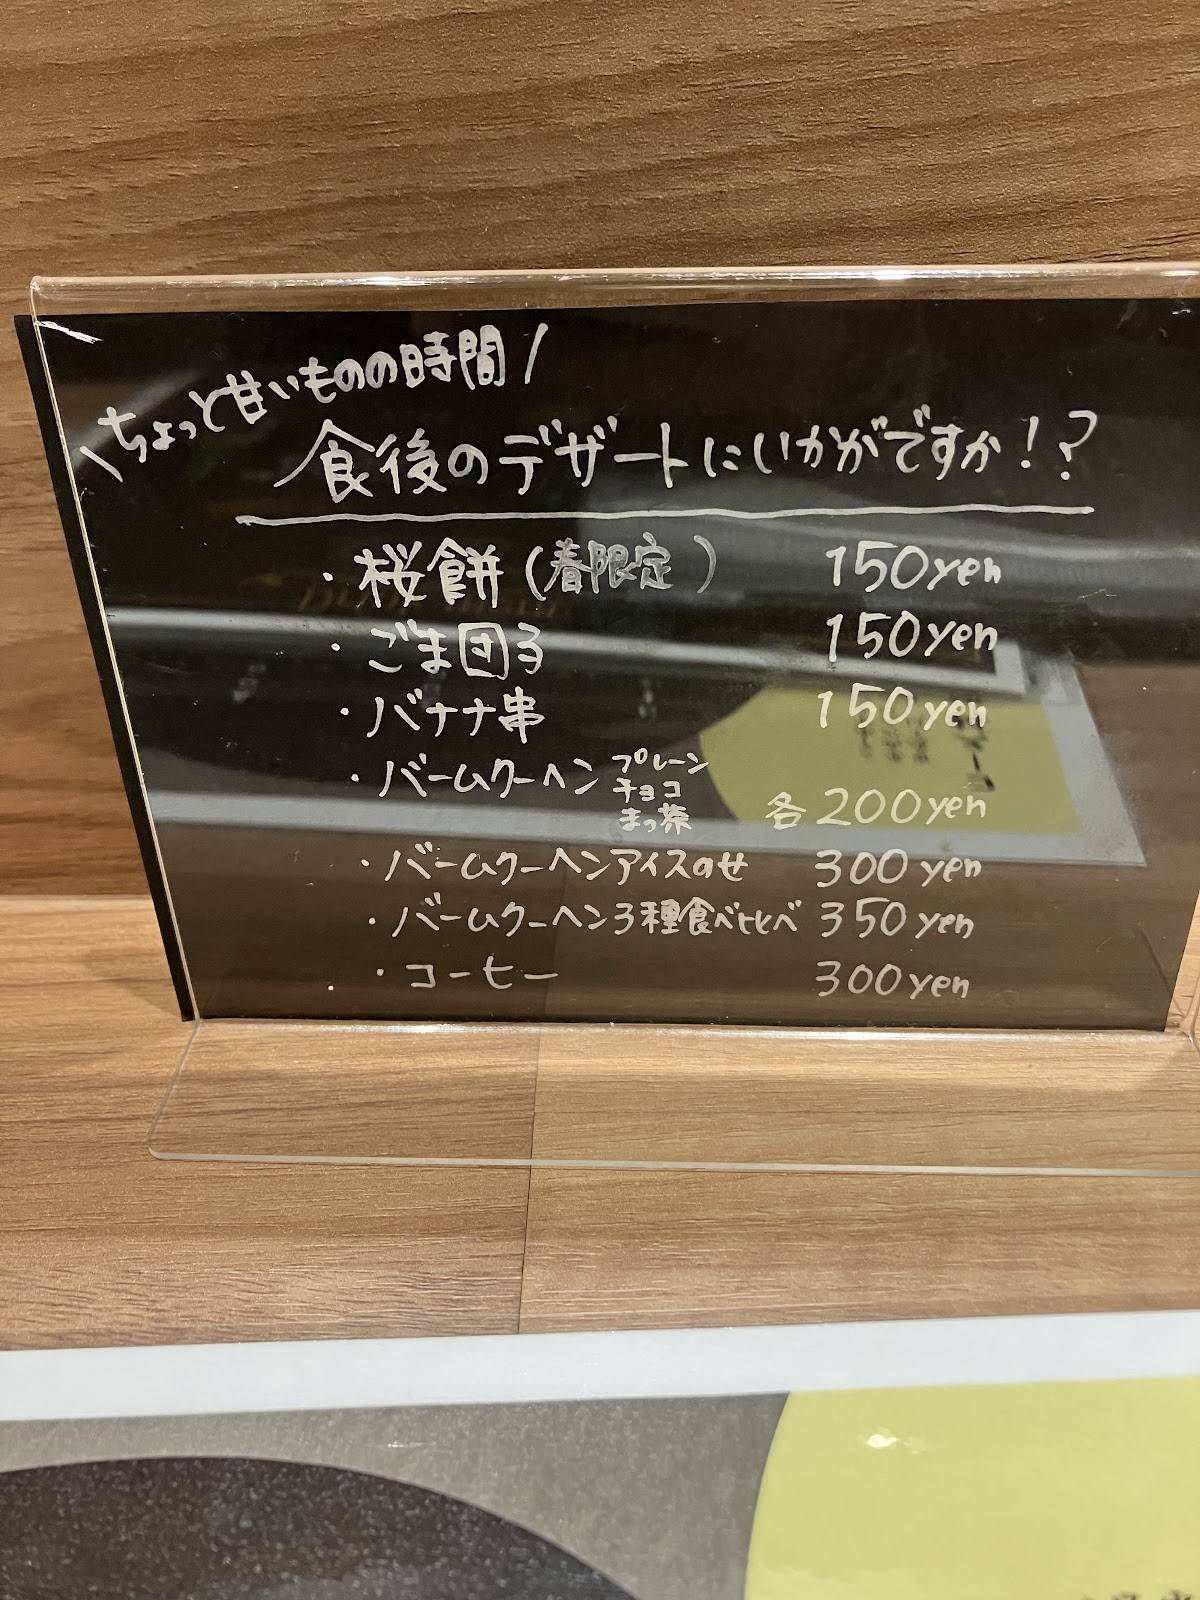 \ちょっと甘いものの時間/
食後のデザートにいかがですか!?
・桜餅(春限定) 150yen
・ごま団子 150yen
・バナナ串 150yen
・バームクーヘン プレーン
チョコ
まっ茶 各200yen
・バームクーヘンアイスのせ 300yen
・バームクーヘン3種食べ比べ 350yen
・コーヒー 300yen